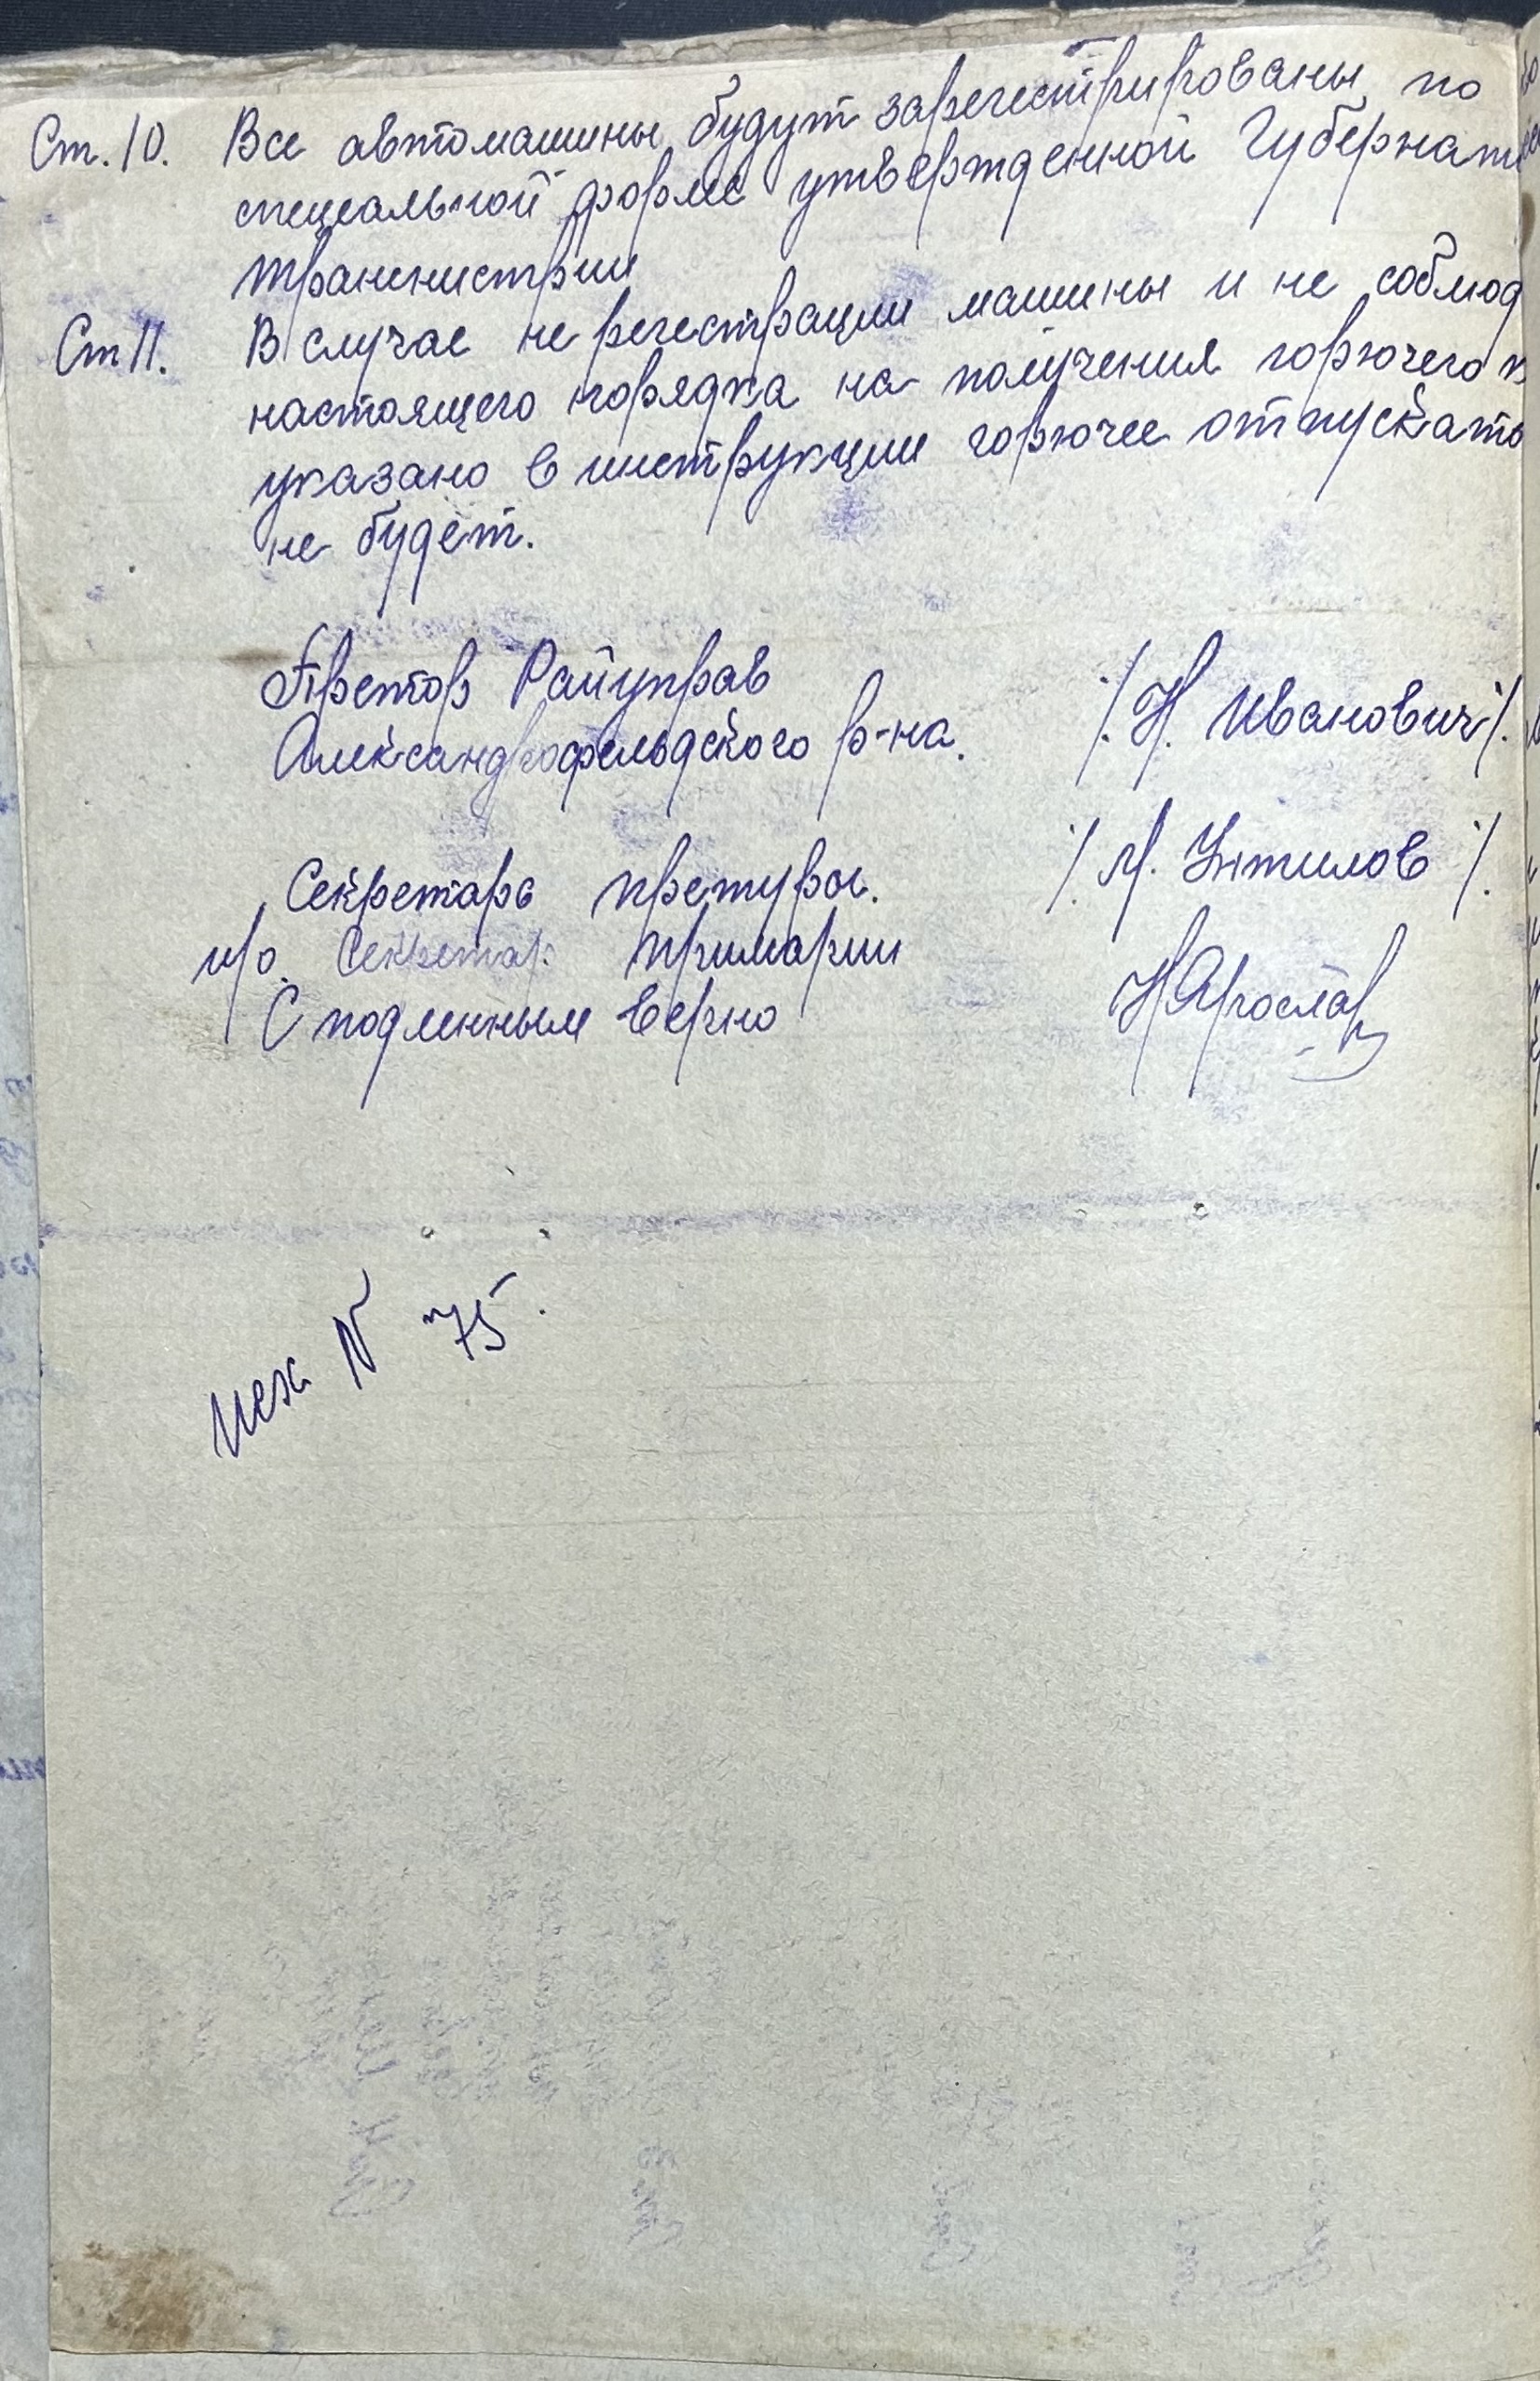 Ст. 10. Все автомашины будут зарегестрированы по
специальной форме утвержденной Губернат
транснистрии
Ст 11. В случае не регестрации машины и не соблюд
настоящего порядка на получения горючего к
указано в инструкции горючее отпускать
не будет.
Претор Райуправ
Александрофельдского р-на. /. Н. Иванович /.
Секретарь претуры. /. М. Унтилов /.
и/о. Секретар. примарии
С подленным верно НЯрослав
исх N 75.